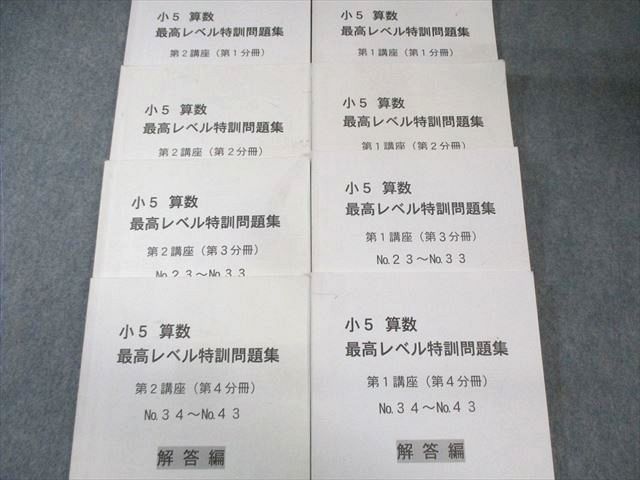 小5 算数
最高レベル特訓問題集
第2講座(第1分冊)
小5 算数
最高レベル特訓問題集
第1講座(第1分冊)
小5 算数
最高レベル特訓問題集
第2講座(第2分冊)
小5 算数
最高レベル特訓問題集
第1講座(第2分冊)
小5 算数
最高レベル特訓問題集
第2講座(第3分冊)
No.23~No.33
小5 算数
最高レベル特訓問題集
第1講座(第3分冊)
No.23~No.33
小5 算数
最高レベル特訓問題集
第2講座(第4分冊)
No.34~No.43
解答編
小5 算数
最高レベル特訓問題集
第1講座(第4分冊)
No.34~No.43
解答編